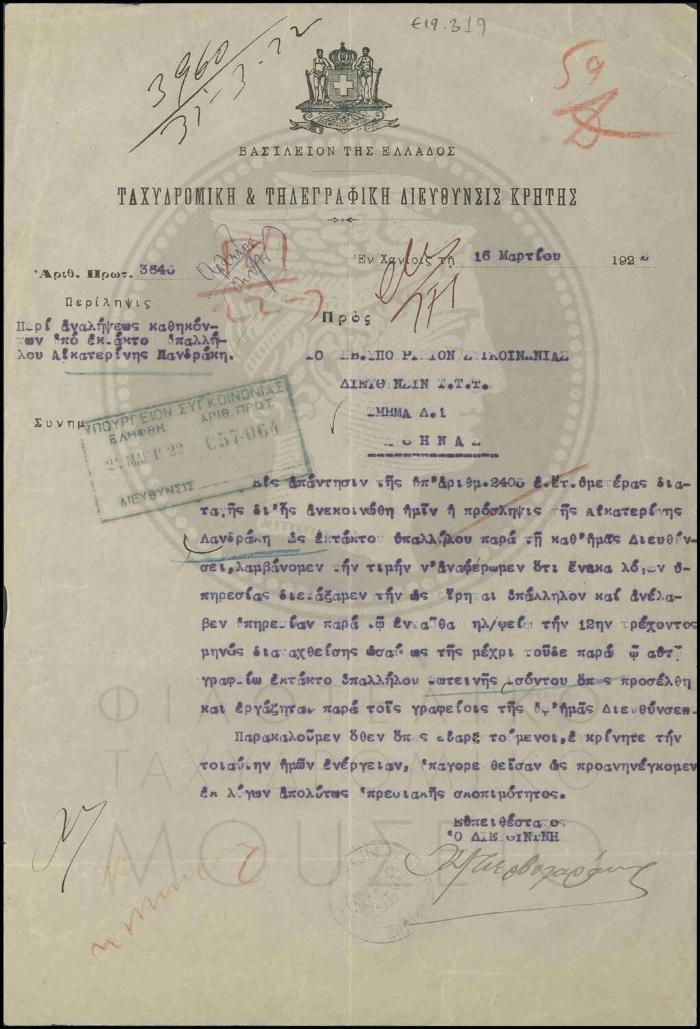 €19.319
3960
31-3-22
59
ΒΑΣΙΛΕΙΟΝ ΤΗΣ ΕΛΛΑΔΟΣ
ΤΑΧΥΔΡΟΜΙΚΗ & ΤΗΛΕΓΡΑΦΙΚΗ ΔΙΕΥΘΥΝΣΙΣ ΚΡΗΤΗΣ
Ἐν Χανίοις τῇ 16 Μαρτίου 192
Ἀριθ. Πρωτ. 3646
Περίληψις
Πρὸς
Περί ἀναλήψεως καθηκόν-
των ὑπό ἐκτάκτο ὑπαλλή-
λου Αἰκατερίνης Μανδράκη.
ΣΥΓΚΟΙΝΩΝΙΑΣ
ΔΙΕΥΘΥΝΣΙΝ Τ.Τ.Τ.
ΤΜΗΜΑ Δ.1
ΑΘΗΝΑΣ
Συνημ
ΥΠΟΥΡΓΕΙΟΝ ΣΥΓΚΟΙΝΩΝΙΑΣ
ΕΛΗΦΘΗ ΑΡΙΘ. ΠΡΩΤ.
ΜΑΡΤ 22 057064
ΔΙΕΥΘΥΝΣΙΣ
ἀπάντησιν τῆς ὑπ'ἀριθμ. 2406 ἐ.ἔτ. ὑμετέρας δια-
ταγῆς δι'ἧς ἀνεκοινώθη ἡμῖν ἡ πρόσληψις τῆς Αἰκατερίνης
ὡς ἐκτάκτου ὑπαλλήλου παρά τῇ καθ'ἡμᾶς Διευθύν-
σει, λαμβάνομεν τήν τιμήν ν'ἀναφέρωμεν ὅτι ἕνεκα λόγων ὑ-
πηρεσίας διετάξαμεν τήν ὡς εἴρηται ὑπάλληλον καί ἀνέλα-
βεν ὑπηρεσίαν παρά τῷ ἐνταῦθα τηλ/φείῳ τήν 12ην τρέχοντος
μηνός διαταχθείσης ὡσαύτως τῆς μέχρι τοῦδε παρά τῷ αὐτῷ
γραφείῳ ἐκτάκτο ὑπαλλήλου Φωτεινῆς ὅπως προσέλθῃ
καί ἐργάζηται παρά τοῖς γραφείοις τῆς ὑφ'ἡμᾶς Διευθύνσεως.
Παρακαλοῦμεν ὅθεν ὅπως εὐαρεστούμενοι, ἐγκρίνητε τήν
τοιαύτην ἡμῶν ἐνέργειαν, ὑπαγορευθεῖσαν ὡς προανηνέγκομεν
ἐκ λόγων ἀπολύτως ὑπηρεσιακῆς σκοπιμότητος.
Εὐπειθέστατος
Ὁ ΔΙΕΥΘΥΝΤΗΣ
ΦΙΛΟΤΕΛΙΚΟ
ΤΑΧΥΔΡΟΜΙΚΟ
ΜΟΥΣΕΙΟ